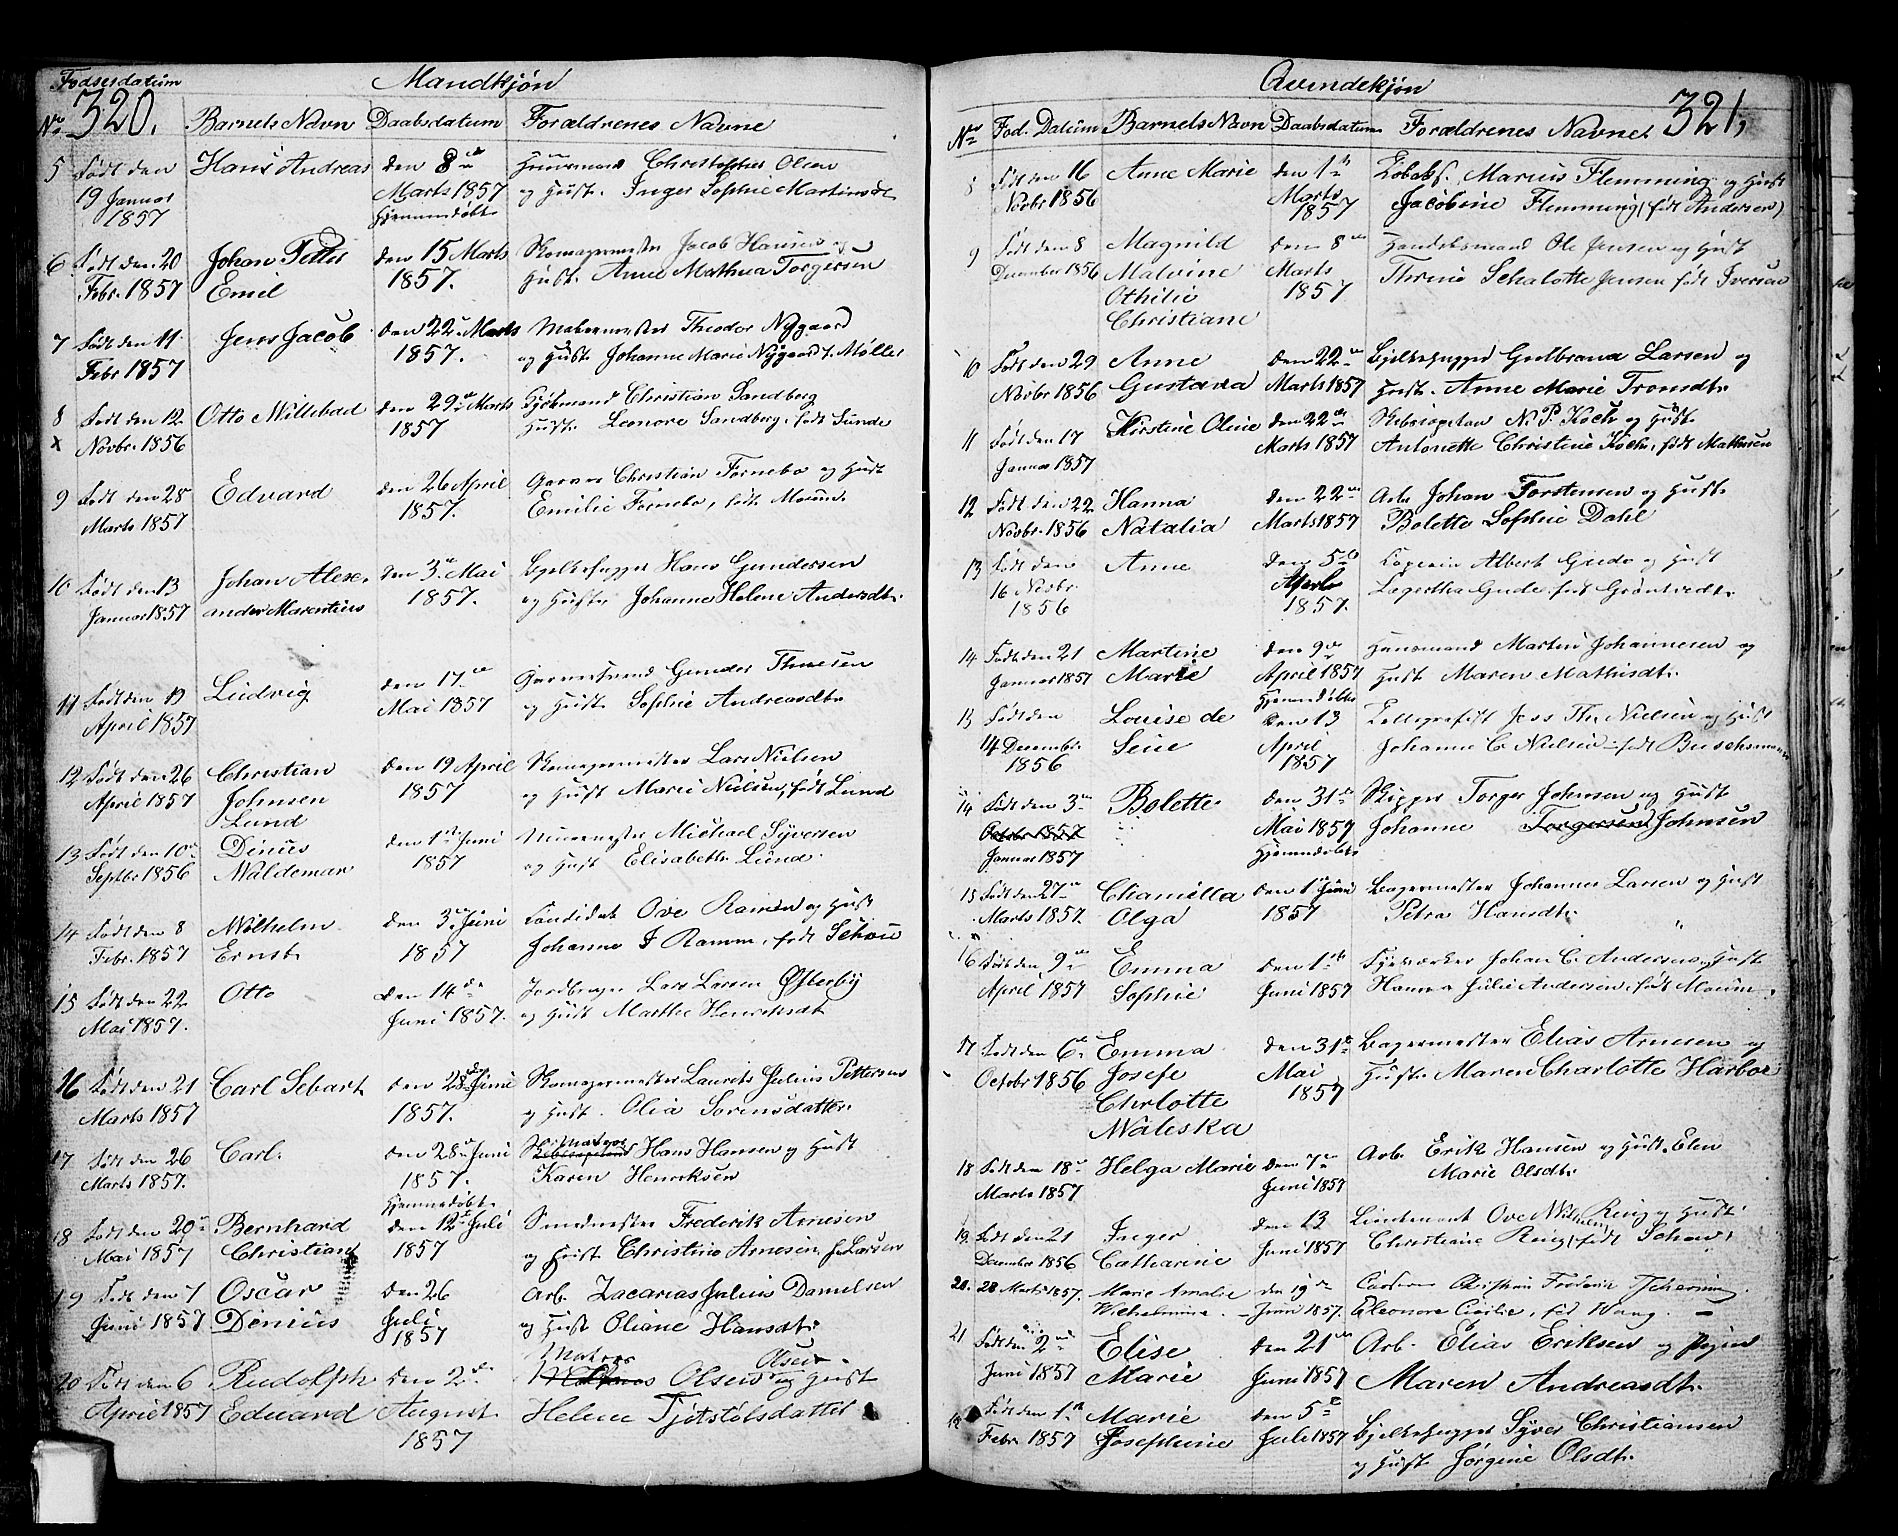 Fødselsdatum Mandkjøn
320.
No Barnets Navn Daabsdatum Forældrenes Navne
5 Født den Hans Andreas den 8de Huusmand Christopher Olsen
19 Januar Marts 1857 og Hustr. Inger Sophie Martinsdt.
1857 Hjemmedøbt
6 Født den 20 Johan Petter den 15 Marts Skomagermester Jacob Hansen og
Febr. 1857 Emil 1857. Hustr. Anne Mathea Torgersen
7 Født den 11 Jens Jacob den 22 Marts Malermester Theodor Nygaard
Febr 1857 1857. og Hustr. Johanne Marie Nygaard f. Møller
8 Født den 12 Otto Willebad den 29 Marts Christian Sandberg
x Novbr. 1856 1857 Hustr. Leonore Sandberg, født Sunde
9 Født den 28 Edvard den 26 April Garver Christian Fornebo og Hust
Marts 1857 1857. Emilie Fornebo, født
10 Født den 13 Johan Alex- den 3die Mai Bjelkehugger Hans Gundersen
Januar 1857 ander Marentius 1857. og Hustr Johanne Helene Andersdt.
11 Født den 19 Ludvig den 17de Gunder
April 1857 Mai 1857 og Hustr Sophie Andreasdt.
12 Født den 26 Christian den 19 April Skomagermester Lars Nielsen
April 1857 Johnsen 1857 og Hust Marie Nielsen, født Lund
Lund
13 Født den 10de Dinius den 1ste Juni Muurmester Michael Syversen
Septbr 1856 Waldemar 1857 og Hust Elisabeth Lund.
14 Født den 8 Wilhelm den 3die Juni Candidat Ove Ramm og Hust
Febr. 1857 Ernst 1857 Johanne F Ramm, født Schou
15 Født den 22 Otto den 14de Jordbruger Lars Larsen Østerby
Mai 1857. Juni 1857. og Hust Marthe Henriksdt
16 Født den 21 Carl Sebart den 28de Juni Skomagermester Laurits Julius Pettersen
Marts 1857 1857. og Hust. Olea Sørensdatter.
17 Født den 26 Carl. den 28de Juni Matros Hans Hansen og Hust
Marts 1857. 1857. Karen Henriksen
Hjemmedøbt
18 Født den 20de Bernhard den 12te Juli Frederik Arnesen
Mai 1857 Christian 1857 og Hust Christine Arnesen f. Larsen
19 Født den 7 Oscar den 26 Arb. Zacarias Julius Danielsen
Juni 1857 Dinius Juli og Hust Oliane Hansdt.
1857
Matros Olsen
20 Født den 6 Rudolph den 2den Olsen og Hust
April 1857 Edvard August Helene Tjøstolsdatter
1857
Qvindekjøn
321,
No Fød. Datum Barnets Navn Daabsdatum Forældrenes Navne
8 Født den 16 Anne Marie den 1ste Marius Flemming og Hust
Novbr 1856 Marts Jacobine Flemming (født Andersen)
1857
9 Født den 8 Magnild den 8de Handelsmand Ole Jensen og Hust
December 1856 Malvine Marts Thrine Schalotte Jensen født Iversen
Othilie 1857
Christiane
10 Født den 29 Anne den 22de Bjelkehugger Gulbrand Larsen og
Novbr 1856 Gustava Marts 1857 Hust. Anne Marie Tronsdt.
11 Født den 17 Kirstine Oline den 22de Skibscaptain N. P. Koch og Hust
Januar 1857 Marts 1857 Antonette Christine Koch, født Mathesen
12 Født den 22 Hanna den 22de Arb. Johan Torstensen og Hust.
Novbr. 1856 Natalia Marts 1857 Bolette Sophie Dahl
13 Født den Anne den 5te Captein Albert Gude og Hust
16 Novbr. April Lagertha Gude født Grøntvedt.
1856 1857.
14 Født den 21 Martine den 9de Huusmand Martin Johannesen og
Januar 1857 Marie April 1857 Hust Maren Mathisdt.
Hjemmedøbt
13 Født den Louise de den 13 Tellegrafist Jess Th. Nielsen og Hust
14 Decembr. Seue April Johanne C. Nielsen født Buschmann
1856 1857
14 Født den 3die Bolette den 31te Skipper Torger Johnsen og Hust
Octobr 1857 Mai 1857 Johanne Torgersen Johnsen
Januar 1857 Hjemmedøbt
15 Født den 27de Chamilla den 1ste Juni Bagermester Johannes Larsen og Hust
Marts 1857. Olga 1857 Petra Hansdt.
16 Født den 9de Emma den 1ste Fyrværker Johan C. Andersen og Hust
April 1857 Sophie Juni 1857 Hanna Julie Andersen, født
17 Født den 6te Emma den 31te Bagermester Elias Arnesen og
Octobr 1856 Josefe Mai Hust. Maren Charlotte Harboe
Chrlotte 1857
Waleska
18 Født den 18de Helga Marie den 7de Arb. Erik Hansen og Hust. Elen
Marts 1857 Juni 1857 Marie Olsdt.
19 Født den 21 Inger den 13 Lieutenant Ove Wilhelm Ring og Hust
December 1856 Catharine Juni 1857 Christiane Ring, født Schou
20. 28 Marts 1857. Marie Amalie den 19de Christian Frederik Tscherning.
Wilhelmine. Juni 1857. Eleonore Cecilie, fød Wang.
21 Født den 2den Elise den 21de Arb. Elias Eriksen og Pigen
Juni 1857 Marie Juni 1857 Maren Andreasdt.
Født den 1ste Marie den 5te Bjelkehugger Syver Christiansen
Febr 1857 Josephine Juli 1857 og Hust Jørgine Olsdt.